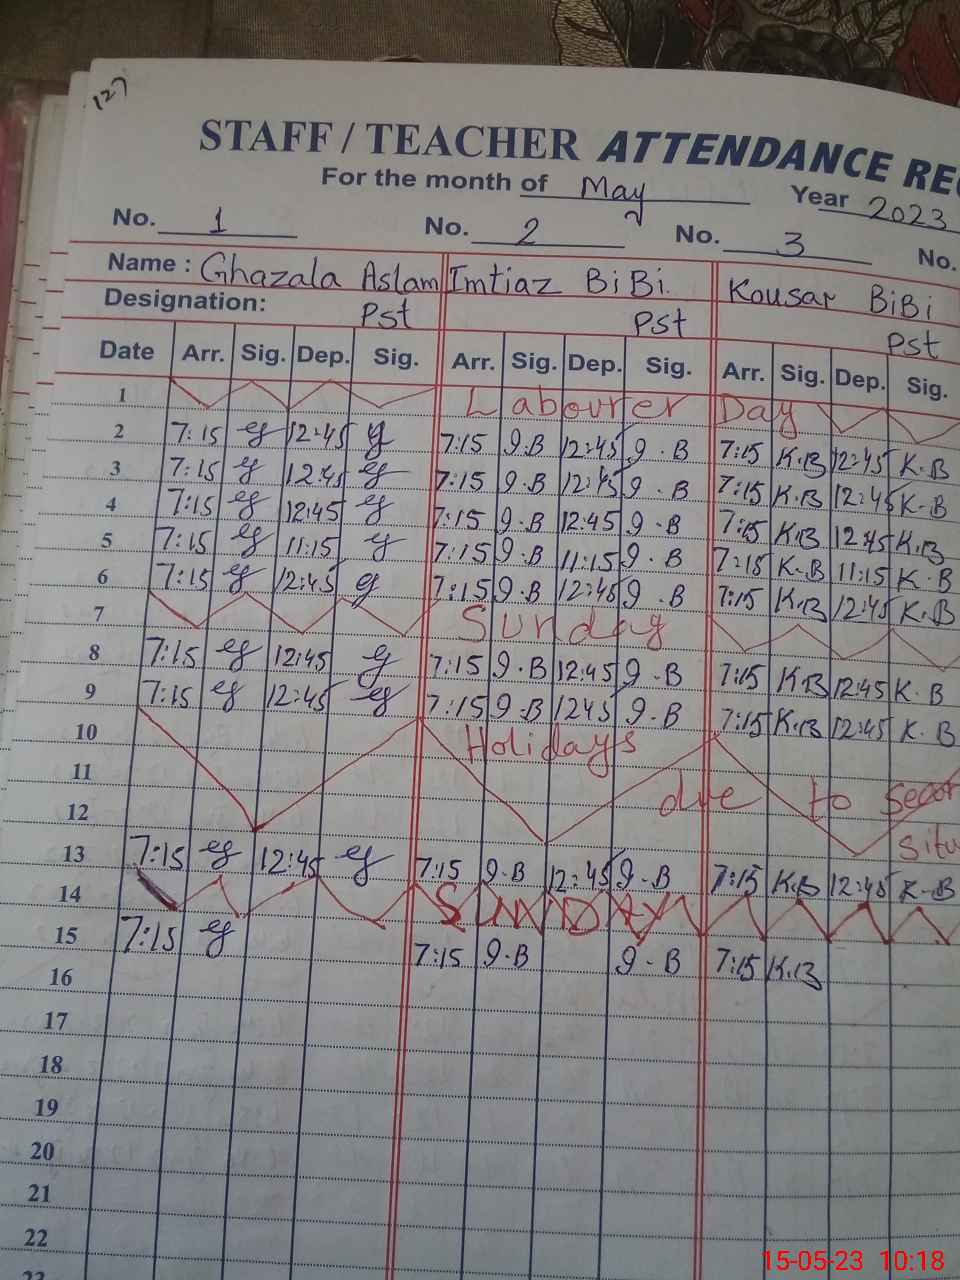 127
STAFF / TEACHER ATTENDANCE
For the month of May Year 2023
No. 1 No. 2 No. 3 No.
Name : Ghazala Aslam Imtiaz BiBi. Kousar BiBi
Designation: Pst Pst Pst
Date Arr. Sig. Dep. Sig. Arr. Sig. Dep. Sig. Arr. Sig. Dep. Sig.
1 Labourer Day
2 7:15 12:45 7:15 9.B 12:45 9.B 7:15 K.B 12:45 K.B
3 7:15 12:45 7:15 9.B 12:45 9.B 7:15 K.B 12:45 K.B
4 7:15 12:45 7:15 9.B 12:45 9.B 7:15 K.B 12:45 K.B
5 7:15 11:15 7:15 9.B 11:15 9.B 7:15 K.B 11:15 K.B
6 7:15 12:45 7:15 9.B 12:45 9.B 7:15 K.B 12:45 K.B
7 Sunday
8 7:15 12:45 7:15 9.B 12:45 9.B 7:15 K.B 12:45 K.B
9 7:15 12:45 7:15 9.B 1245 9.B 7:15 K.B 12:45 K.B
10 Holidays
11 due to
12
13 7:15 12:45 7:15 9.B 12:45 9.B 7:15 K.B 12:45 K-B
14 SUNDAY
15 7:15 7:15 9.B 9-B 7:15 K.B
16
17
18
19
20
21
22
15-05-23 10:18